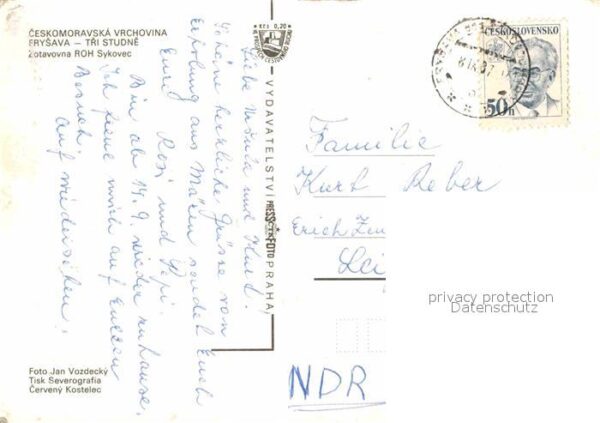 ČESKOMORAVSKÁ VRCHOVINA
FRYŠAVA – TŘI STUDNĚ
Zotavovna ROH Sykovec
Kčs 0,20
Liebe und Kurt!
Schöne herzliche Grüsse von
Erholung aus sendet Euch
Eure Resi und Pepi.
Bin ab 14.9. wieder zuhause.
Ich freue mich auf Eueren
Besuch.
Auf wiedersehen!
Foto Jan Vozdecký
Tisk Severografia
Červený Kostelec
VYDAVATELSTVÍ PRESSFOTO PRAHA
ČESKOSLOVENSKO
50h
Familie
Kurt Reber
Erich
Lei
privacy protection
Datenschutz
NDR